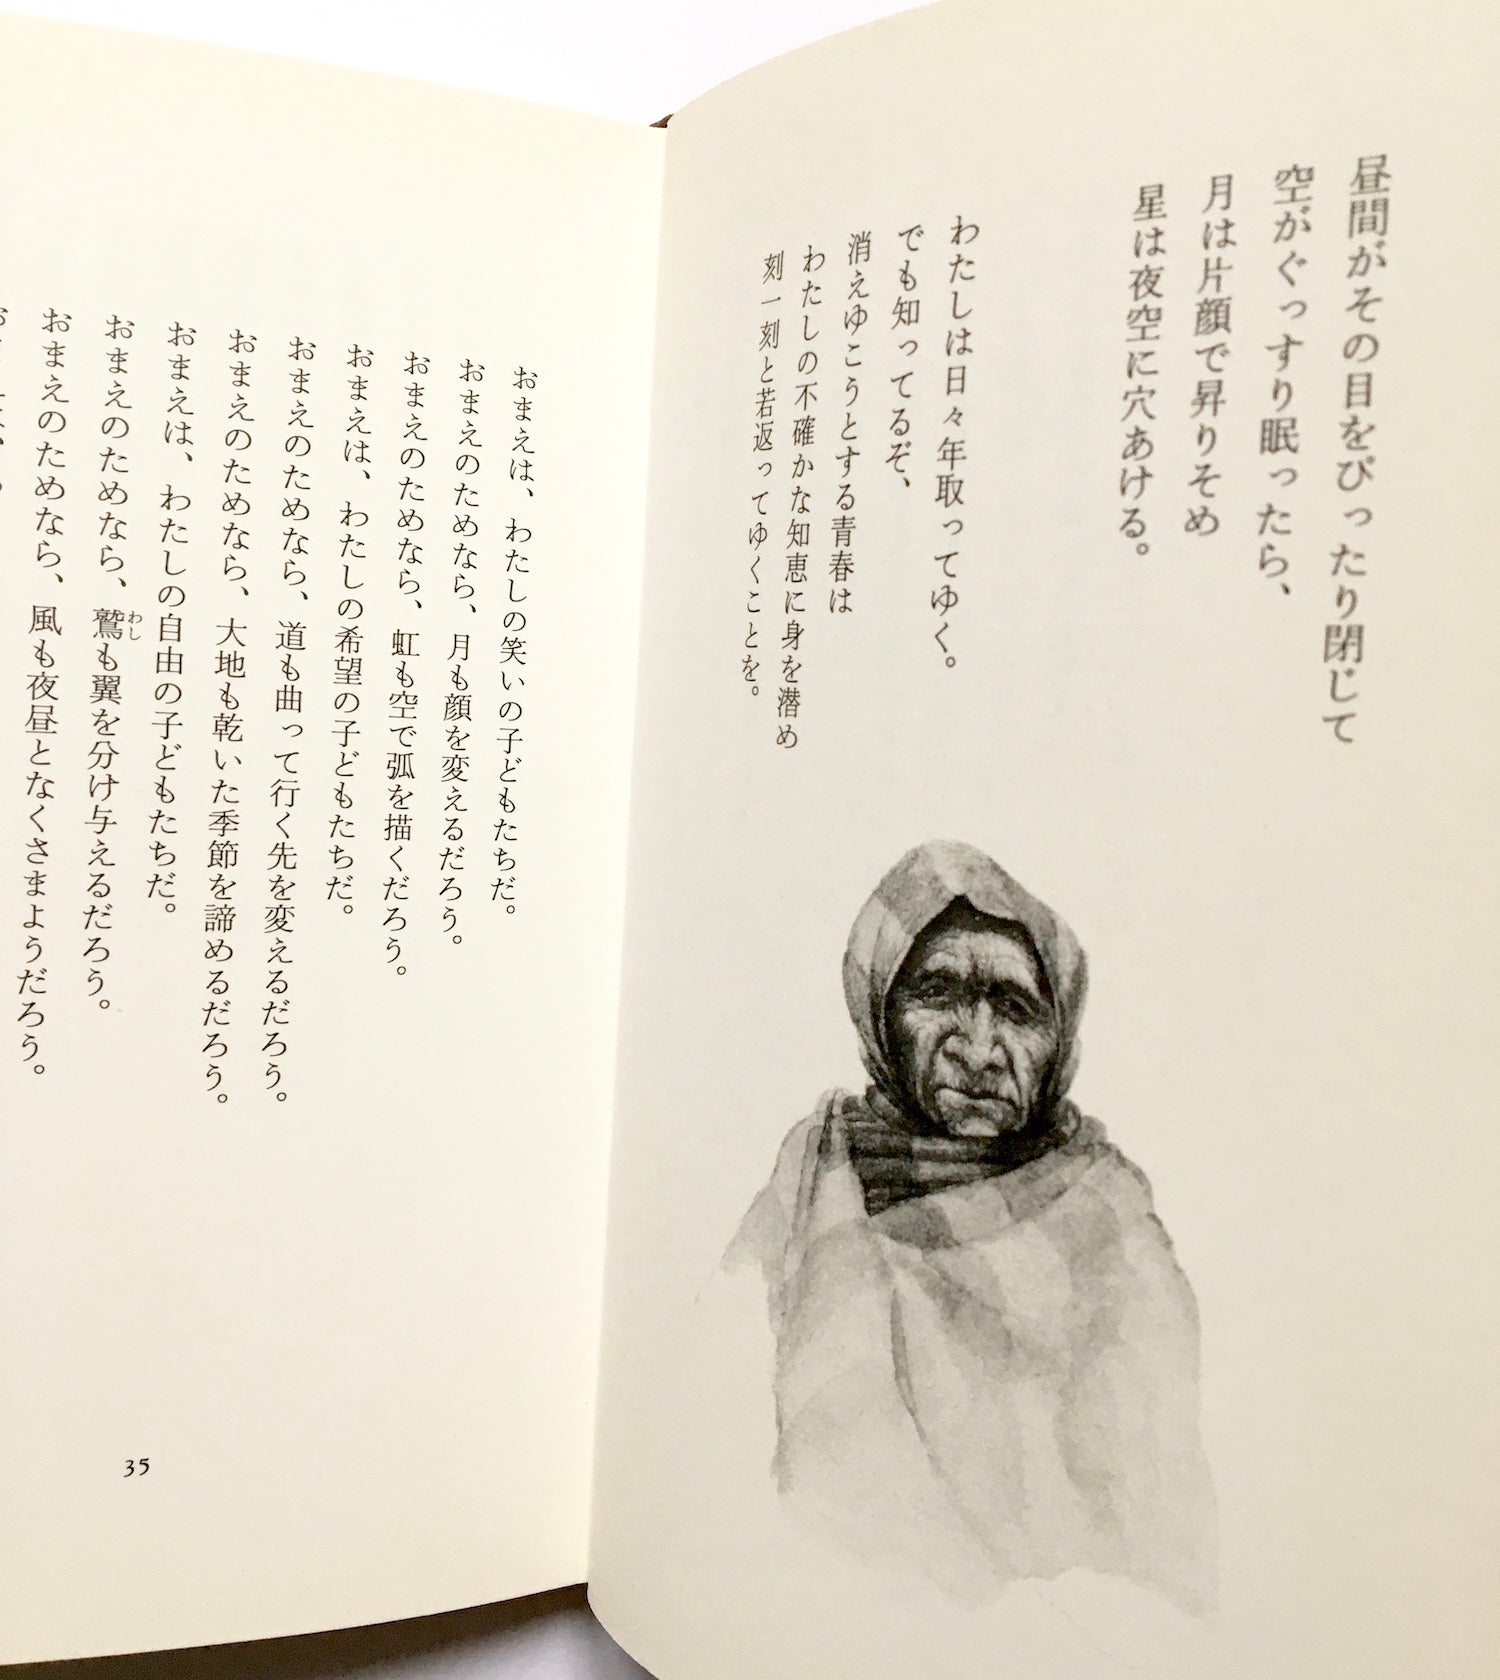 昼間がその目をぴったり閉じて
空がぐっすり眠ったら、
月は片顔で昇りそめ
星は夜空に穴あける。
わたしは日々年取ってゆく。
でも知ってるぞ、
消えゆこうとする青春は
わたしの不確かな知恵に身を潜め
刻一刻と若返ってゆくことを。
おまえは、わたしの笑いの子どもたちだ。
おまえのためなら、月も顔を変えるだろう。
おまえのためなら、虹も空で弧を描くだろう。
おまえは、わたしの希望の子どもたちだ。
おまえのためなら、道も曲って行く先を変えるだろう。
おまえのためなら、大地も乾いた季節を諦めるだろう。
おまえは、わたしの自由の子どもたちだ。
おまえのためなら、鷲も翼を分け与えるだろう。
わし
おまえのためなら、風も夜昼となくさまようだろう。
35